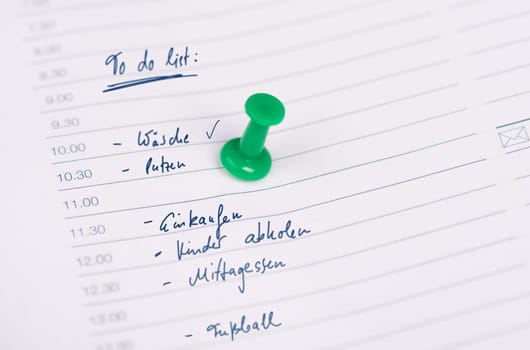 To do list:
8.30
9.00
9.30
10.00 - Wäsche ✓
10.30 - Putzen
11.00
11.30 - Einkaufen
12.00 - Kinder abholen
12.30 - Mittagessen
13.00
- Fußball